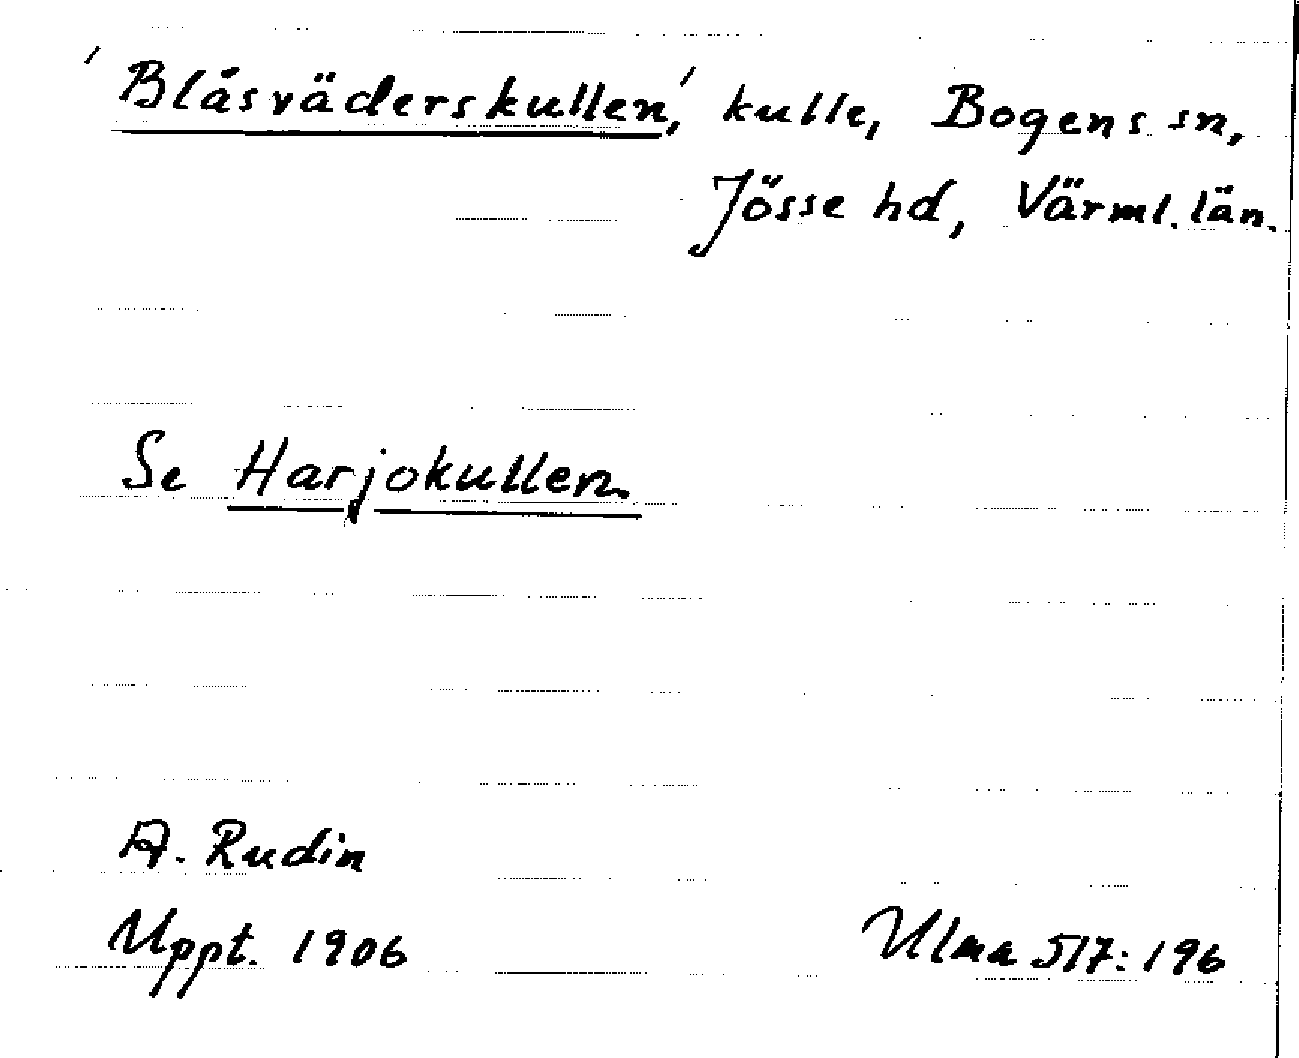 'Blåsväderskullen', kulle, Bogens sn,
Jösse hd, Värml. län.
Se Harjokullen.
A. Rudin
Uppt. 1906
Ulma 517:196